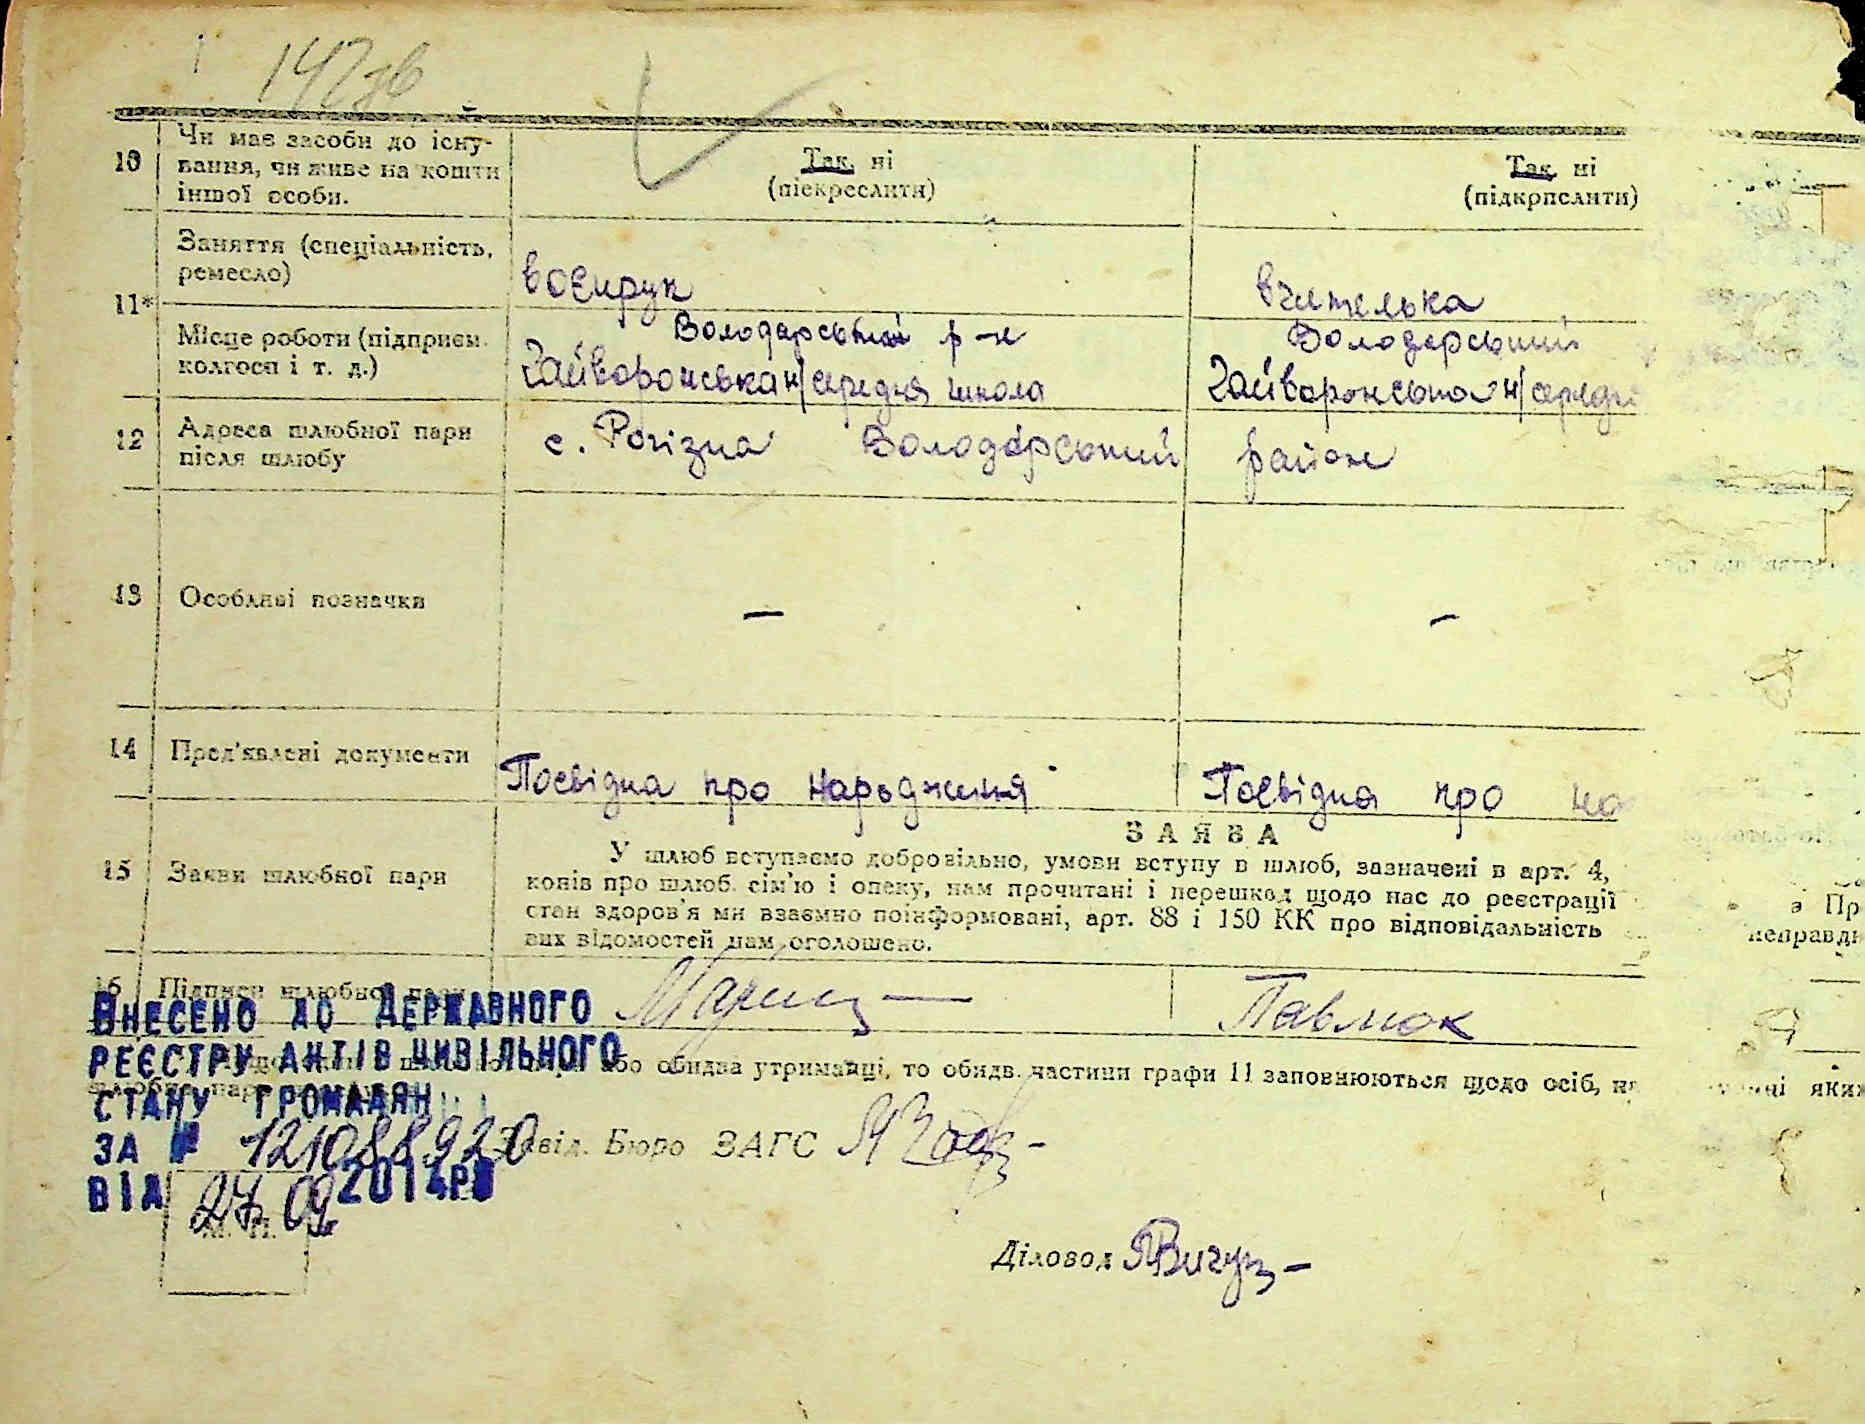 142зв
10 Чи має засоби до існу-
вання, чи живе на кошти
іншої особи.
Так, ні
(пiекреслити)
Так, ні
(підкрпслити)
11* Заняття (спеціальність,
ремесло)
воєнрук
вчителька
Місце роботи (підприєм.
колгосп і т. д.)
Володарський р-н
Гайворонська н/середня школа
Володарський
Гайворонська н/середн
12 Адреса шлюбної пари
після шлюбу
с. Рогізна Володарський район
13 Особливі позначки
–
–
14 Пред'явлені документи
Посвідка про народження
Посвідка про на
15 Заяви шлюбної пари
ЗАЯВА
У шлюб вступаємо добровільно, умови вступу в шлюб, зазначені в арт. 4,
конів про шлюб. сім'ю і опеку, нам прочитані і перешкод щодо нас до реєстрації
стан здоров'я ми взаємно поінформовані, арт. 88 і 150 КК про відповідальність
вих відомостей нам оголошено.
з Пр
неправди
16 Підписи шлюбної пари
Павлюк
або обидва утриманці, то обидв. частини графи 11 заповнюються щодо осіб, на яких
шлюбна пара
ВНЕСЕНО ДО ДЕРЖАВНОГО
РЕЄСТРУ АКТІВ ЦИВІЛЬНОГО
СТАНУ ГРОМАДЯН
ЗА № 121088920
ВІД 27 09 2014Р
Завід. Бюро ЗАГС
М. П.
Діловод